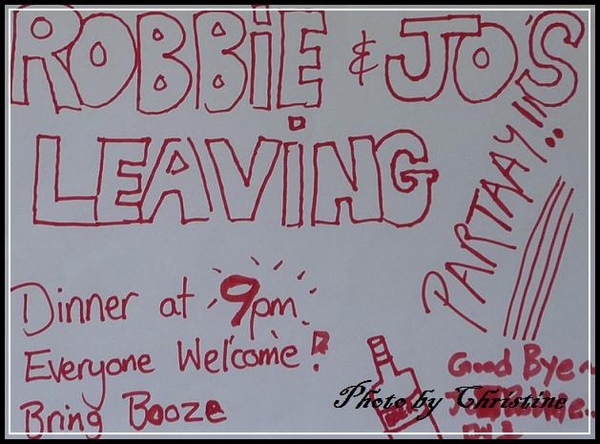 ROBBiE & JO'S
LEAViNG
PARTAAY!!
Dinner at 9pm
Everyone Welcome!
Bring Booze
Good Bye
Photo by Christine